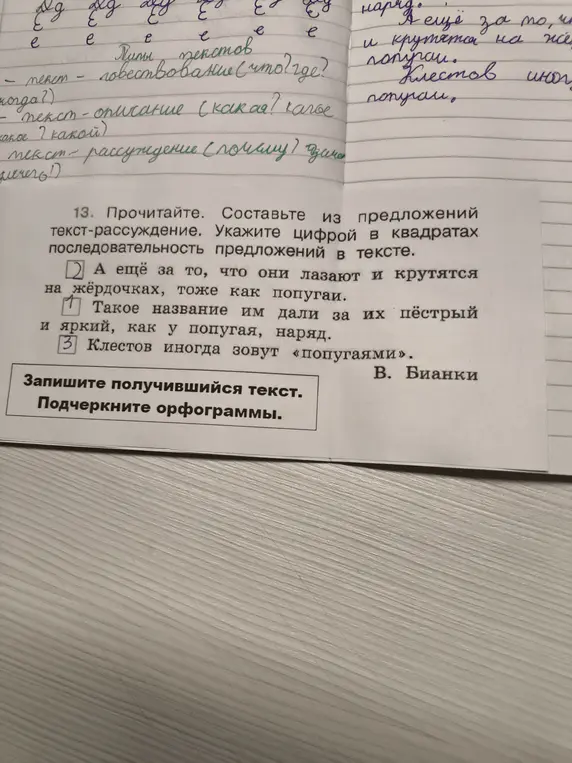 Дд Дд Дд Дд Дд
Ё Ё Ё Ё Ё Ё
е е е е е е
Типы текстов
- текст - повествование (что? где?
когда?)
- текст - описание (какая? какое
какое? какой?)
текст - рассуждение (почему?
наряд.
А ещё за то, ч
и крутятся на жё
попугаи.
Клестов иног
попугаи.
13. Прочитайте. Составьте из предложений
текст-рассуждение. Укажите цифрой в квадратах
последовательность предложений в тексте.
2 А ещё за то, что они лазают и крутятся
на жёрдочках, тоже как попугаи.
1 Такое название им дали за их пёстрый
и яркий, как у попугая, наряд.
3 Клестов иногда зовут «попугаями».
В. Бианки
Запишите получившийся текст.
Подчеркните орфограммы.